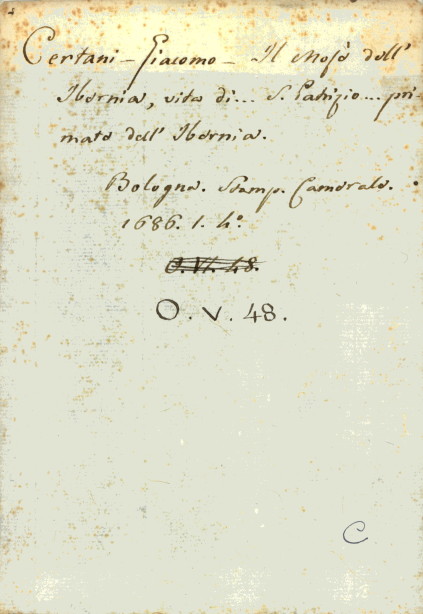 Certani - Giacomo - Il Mosè dell'
Ibernia, vita di... S. Patrizio... pri-
mate dell' Ibernia.
Bologna. Stamp. Camerale.
1686. 1. 4°.
O. VI. 48.
O. V. 48.
C